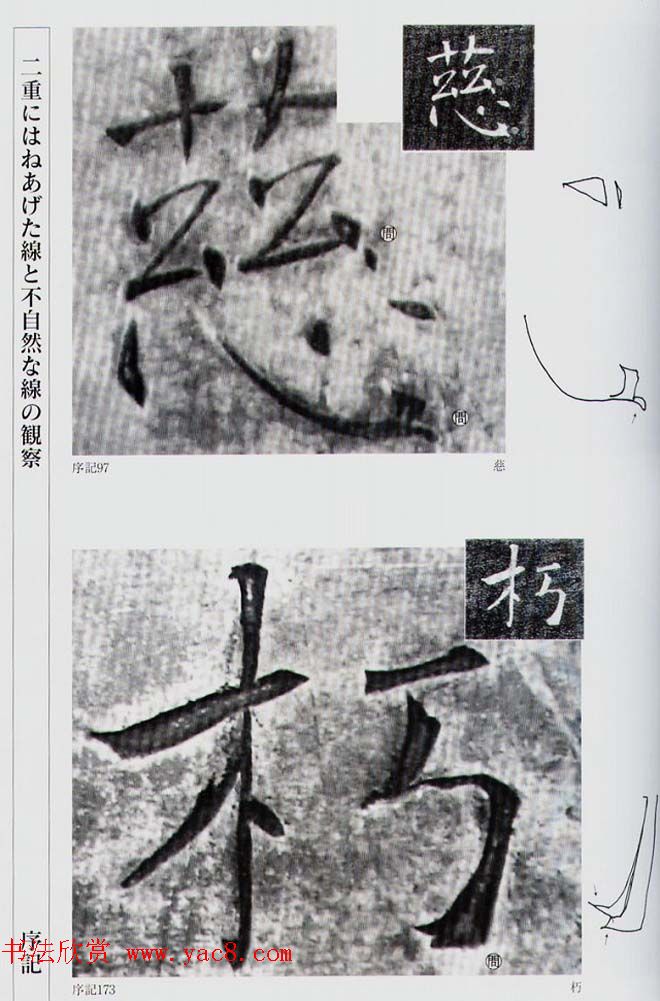 二重にはねあげた線と不自然な線の観察
序記
慈
慈
問
問
序記97
慈
朽
朽
問
序記173
朽
书法欣赏 www.yac8.com